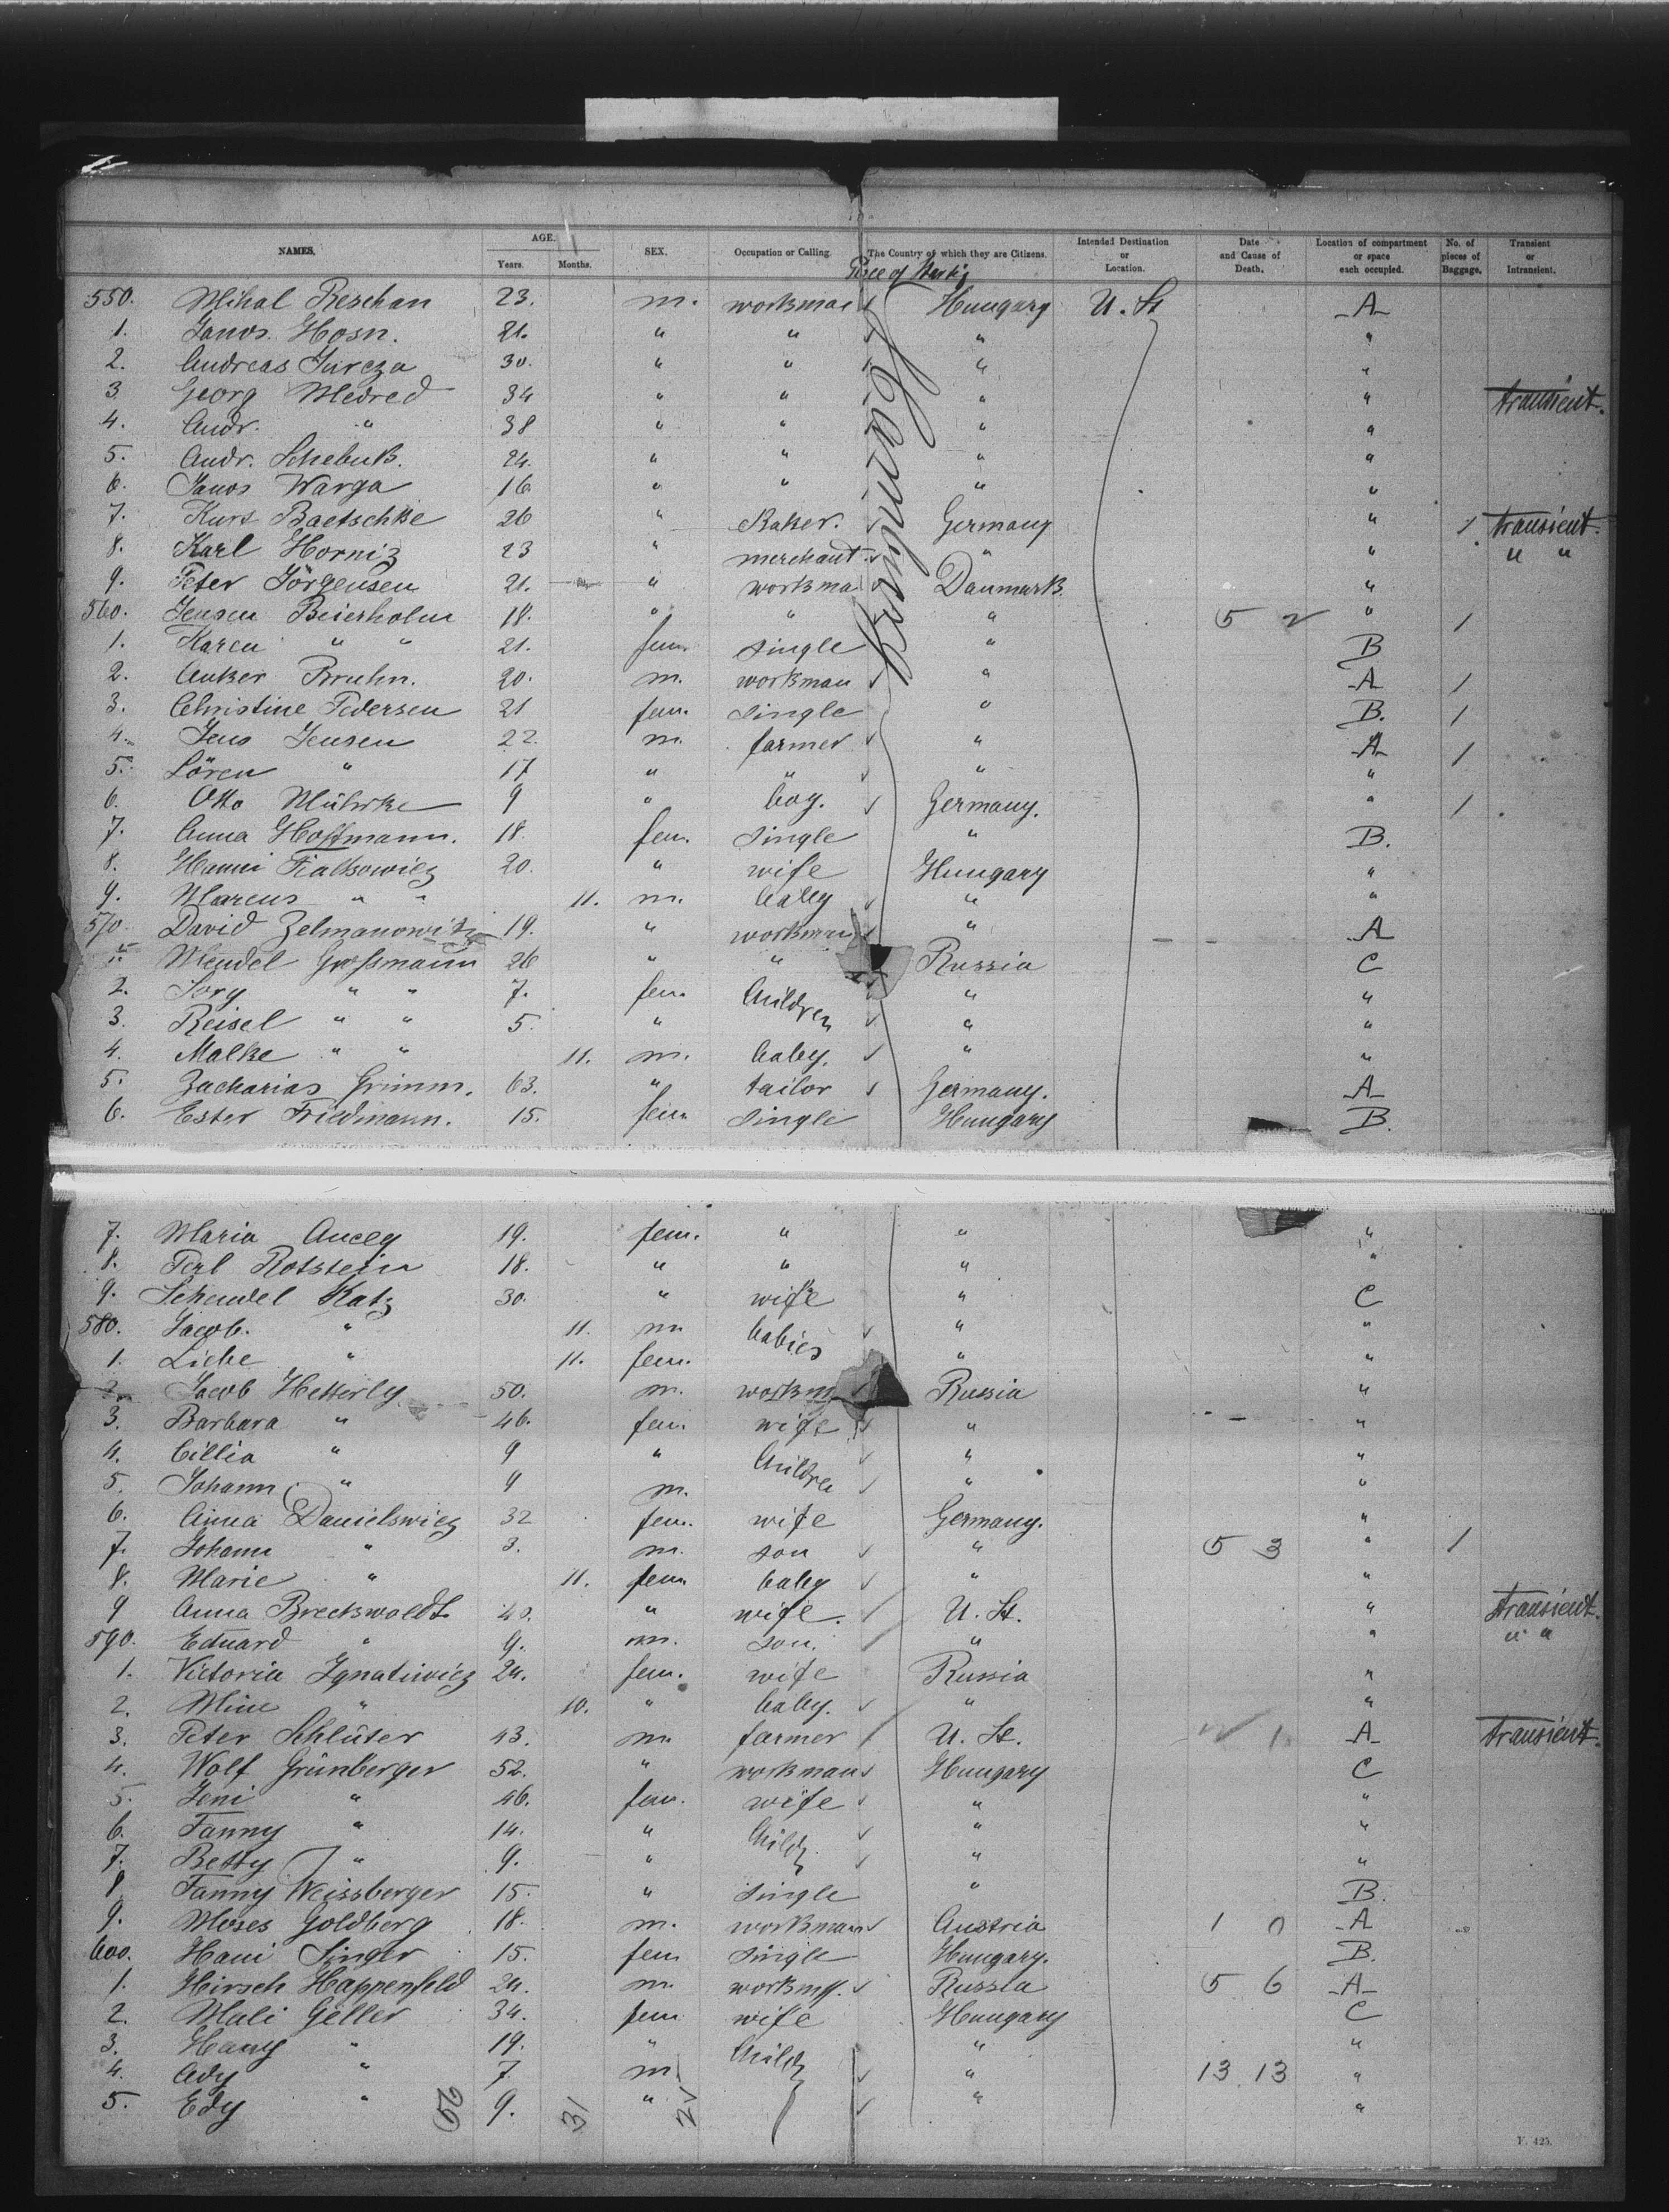 NAMES. AGE. Years. Months. SEX. Occupation or Calling. The Country of which they are Citizens. Intended Destination or Location. Date and Cause of Death. Location of compartment or space each occupied. No. of pieces of Baggage. Transient or Intransient.
Hamburg
550. Mihal Reschan 23. m. workman Hungary U. St A
1. Janos Hosn. 21. " " " "
2. Andreas Jurcza 30. " " " "
3. Georg Medred 34 " " " " transient.
4. Andr. " 38 " " " "
5. Andr. Schebuk. 24. " " " "
6. Janos Warga 16 " " " "
7. Kurt Baetschke 26 " Baker. Germany " 1 transient.
8. Karl Horniz 23 " merchant " " " "
9. Peter Jörgensen 21. " workma Danmark "
560. Jensen Beierholm 18. " " " 5 2 " 1
1. Karen " " 21. fem. single " B
2. Anker Bruhn. 20. m. workman " A 1
3. Christine Pedersen 21 fem. single " B. 1
4. Jens Jensen 22. m. farmer " A 1
5. Sören " 17 " " " "
6. Otto Mührke 9 " boy. Germany. " 1
7. Anna Hoffmann. 18. fem. single " B.
8. Hanni Fialkowicz 20. " wife Hungary "
9. Marcus " " 11. m. baby " "
570. David Zelmanowitz 19. " workman " A
1. Mendel Grossmann 26 " " Russia C
2. Sory " " 7. fem. Children " "
3. Reisel " " 5. " " "
4. Malke " " 11. m. baby. " "
5. Zacharias Grimm. 63. " tailor Germany. A
6. Ester Friedmann. 15. fem single Hungary B.
7. Maria Ancey 19. fem. " " "
8. Perl Rotstein 18. " " " "
9. Schendel Katz 30. " wife " C
580. Jacob. " 11. m babies " "
1. Liebe " 11. fem. " "
2. Jacob Hetterly 50. m. workm Russia "
3. Barbara " 46. fem. wife " "
4. Cillia " 9 " Children " "
5. Johann " 9 m. " "
6. Anna Danielswicz 32 fem. wife Germany. "
7. Johann " 3. m. son " 5 3 " 1
8. Marie " 11. fem baby " "
9 Anna Breckwoldt 40. " wife. U. St. " transient.
590. Eduard " 9. m. son. " " " "
1. Victoria Ignatiwicz 24. fem. wife Russia "
2. Mine " 10. " baby. " "
3. Peter Schlüter 43. m. farmer U. St. 1 A transient.
4. Wolf Grünberger 52. " workman Hungary C
5. Jeni " 46. fem. wife " "
6. Fanny " 14. " Child " "
7. Betty " 9. " " "
8 Fanny Weissberger 15. " single " B.
9. Moses Goldberg 18. m. workman Austria 1 0 A
600. Hani Singer 15. fem single Hungary. B.
1. Hirsch Happenfeld 24. m. workm. Russia 5 6 A
2. Mali Geller 34. fem wife Hungary C
3. Hany " 19. " Child " "
4. Ady " 7 m. " 13 13 "
5. Edy " 9. " " "
56 31 21
F. 425.